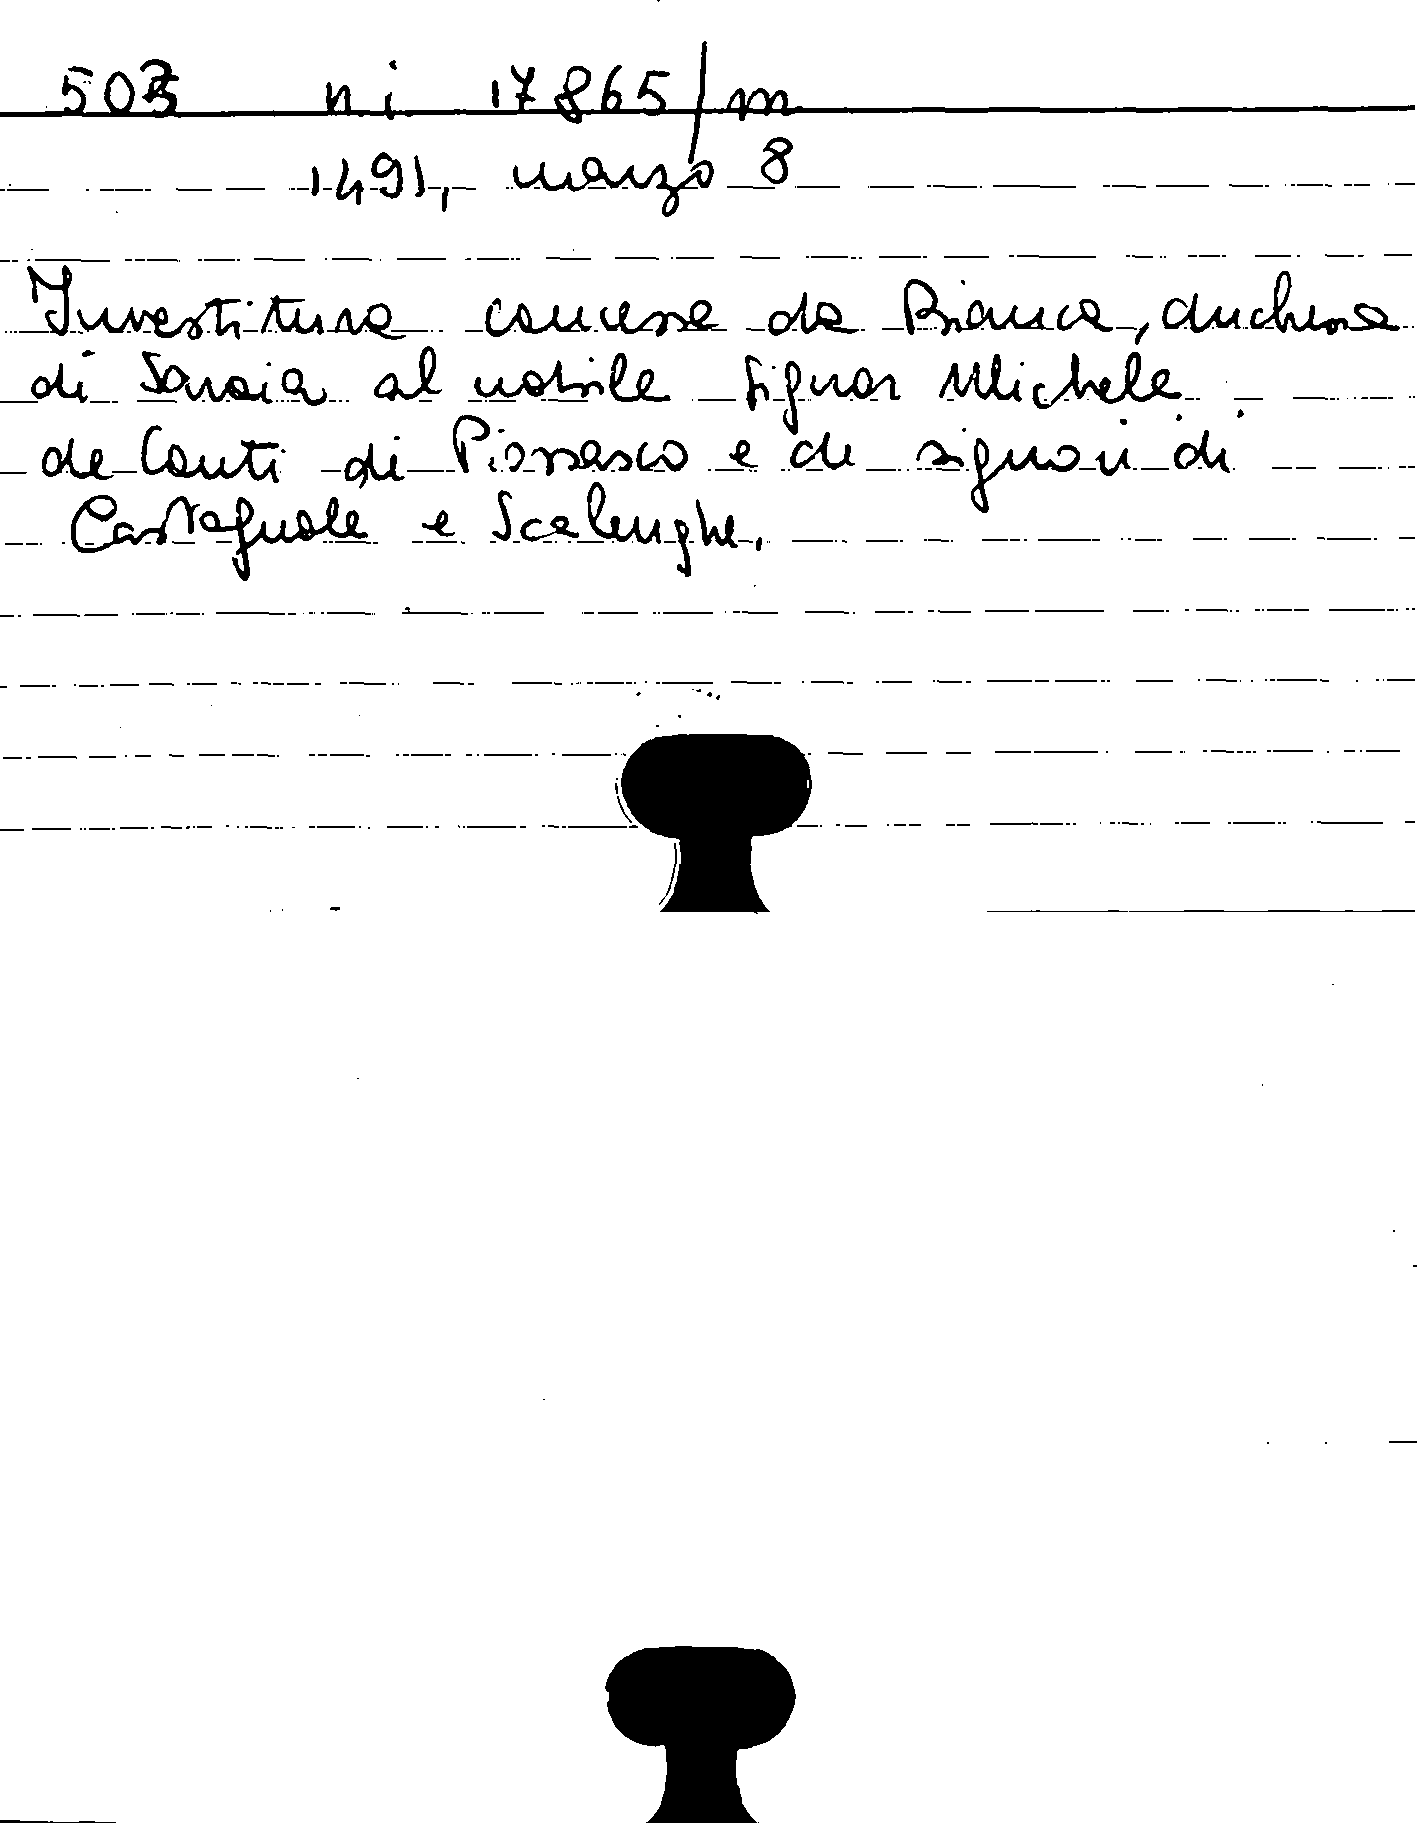 503 ni 17865/m
1491, marzo 8
Investitura concessa da Bianca, duchessa
di Savoia al nobile signor Michele
de Conti di Piossasco e de signori di
Castagnole e Scalenghe.